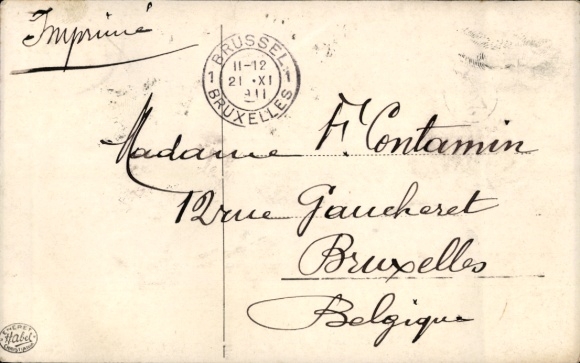 Imprimé
BRUSSEL
1 1
11-12
21 XI
1911
BRUXELLES
Madame F. Contamin
12 rue Gaucheret
Bruxelles
Belgique
Habel